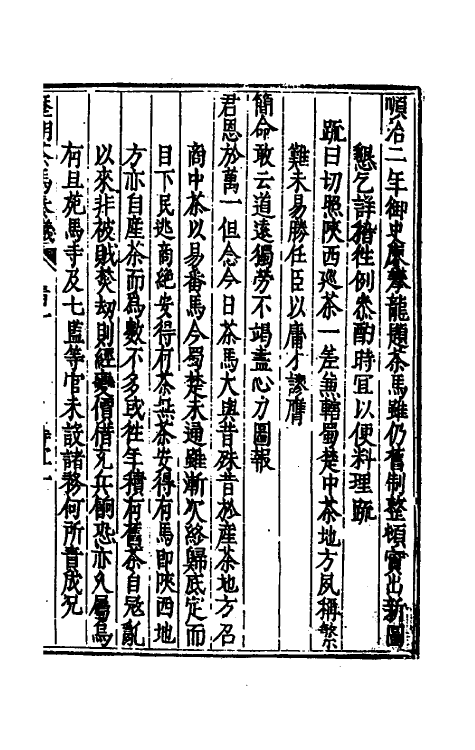 順治二年御史廖攀龍題茶馬雖仍舊制整頓實出新圖
懇乞詳稽徃例叅酌時宜以便料理疏
疏曰切照陝西廵茶一差兼轄蜀楚中茶地方夙稱繁
難未易勝任臣以庸才謬膺
簡命敢云道遠獨勞不竭盡心力圖報
君恩於萬一但念今日茶馬大與昔殊昔於產茶地方召
商中茶以易番馬今蜀楚未通雖漸次綌歸底定而
目下民逃商絕安得有茶無茶安得有馬即陝西地
方亦自產茶而為數不多或徃年積有舊茶自冦亂
以來非被賊焚刼則經變價借充兵餉恐亦久屬烏
有且苑馬寺及七監等官未設諸務何所責成况
歷朝茶馬奏議